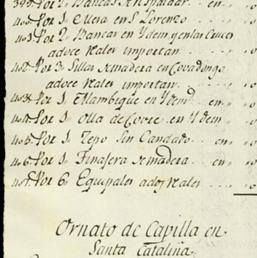 399. Por 2. Bancas sin espaldar ... en ..
400. Por 1. Mesa en S. Lorenzo
401. Por 2. Bancas en Ydem y en las Cruces
a doce reales importan
402. Por 3. Sillas de madera en Covadonga
a doce reales importan
403. Por 1. Alambique en Ydem
404. Por 1. Olla de Cobre en Ydem
405. Por 1. Zepo sin Candado en
406. Por 1. Tinajera de madera en
407. Por 6. Equipales a dos reales
Ornato de Capilla en
Santa Catalina